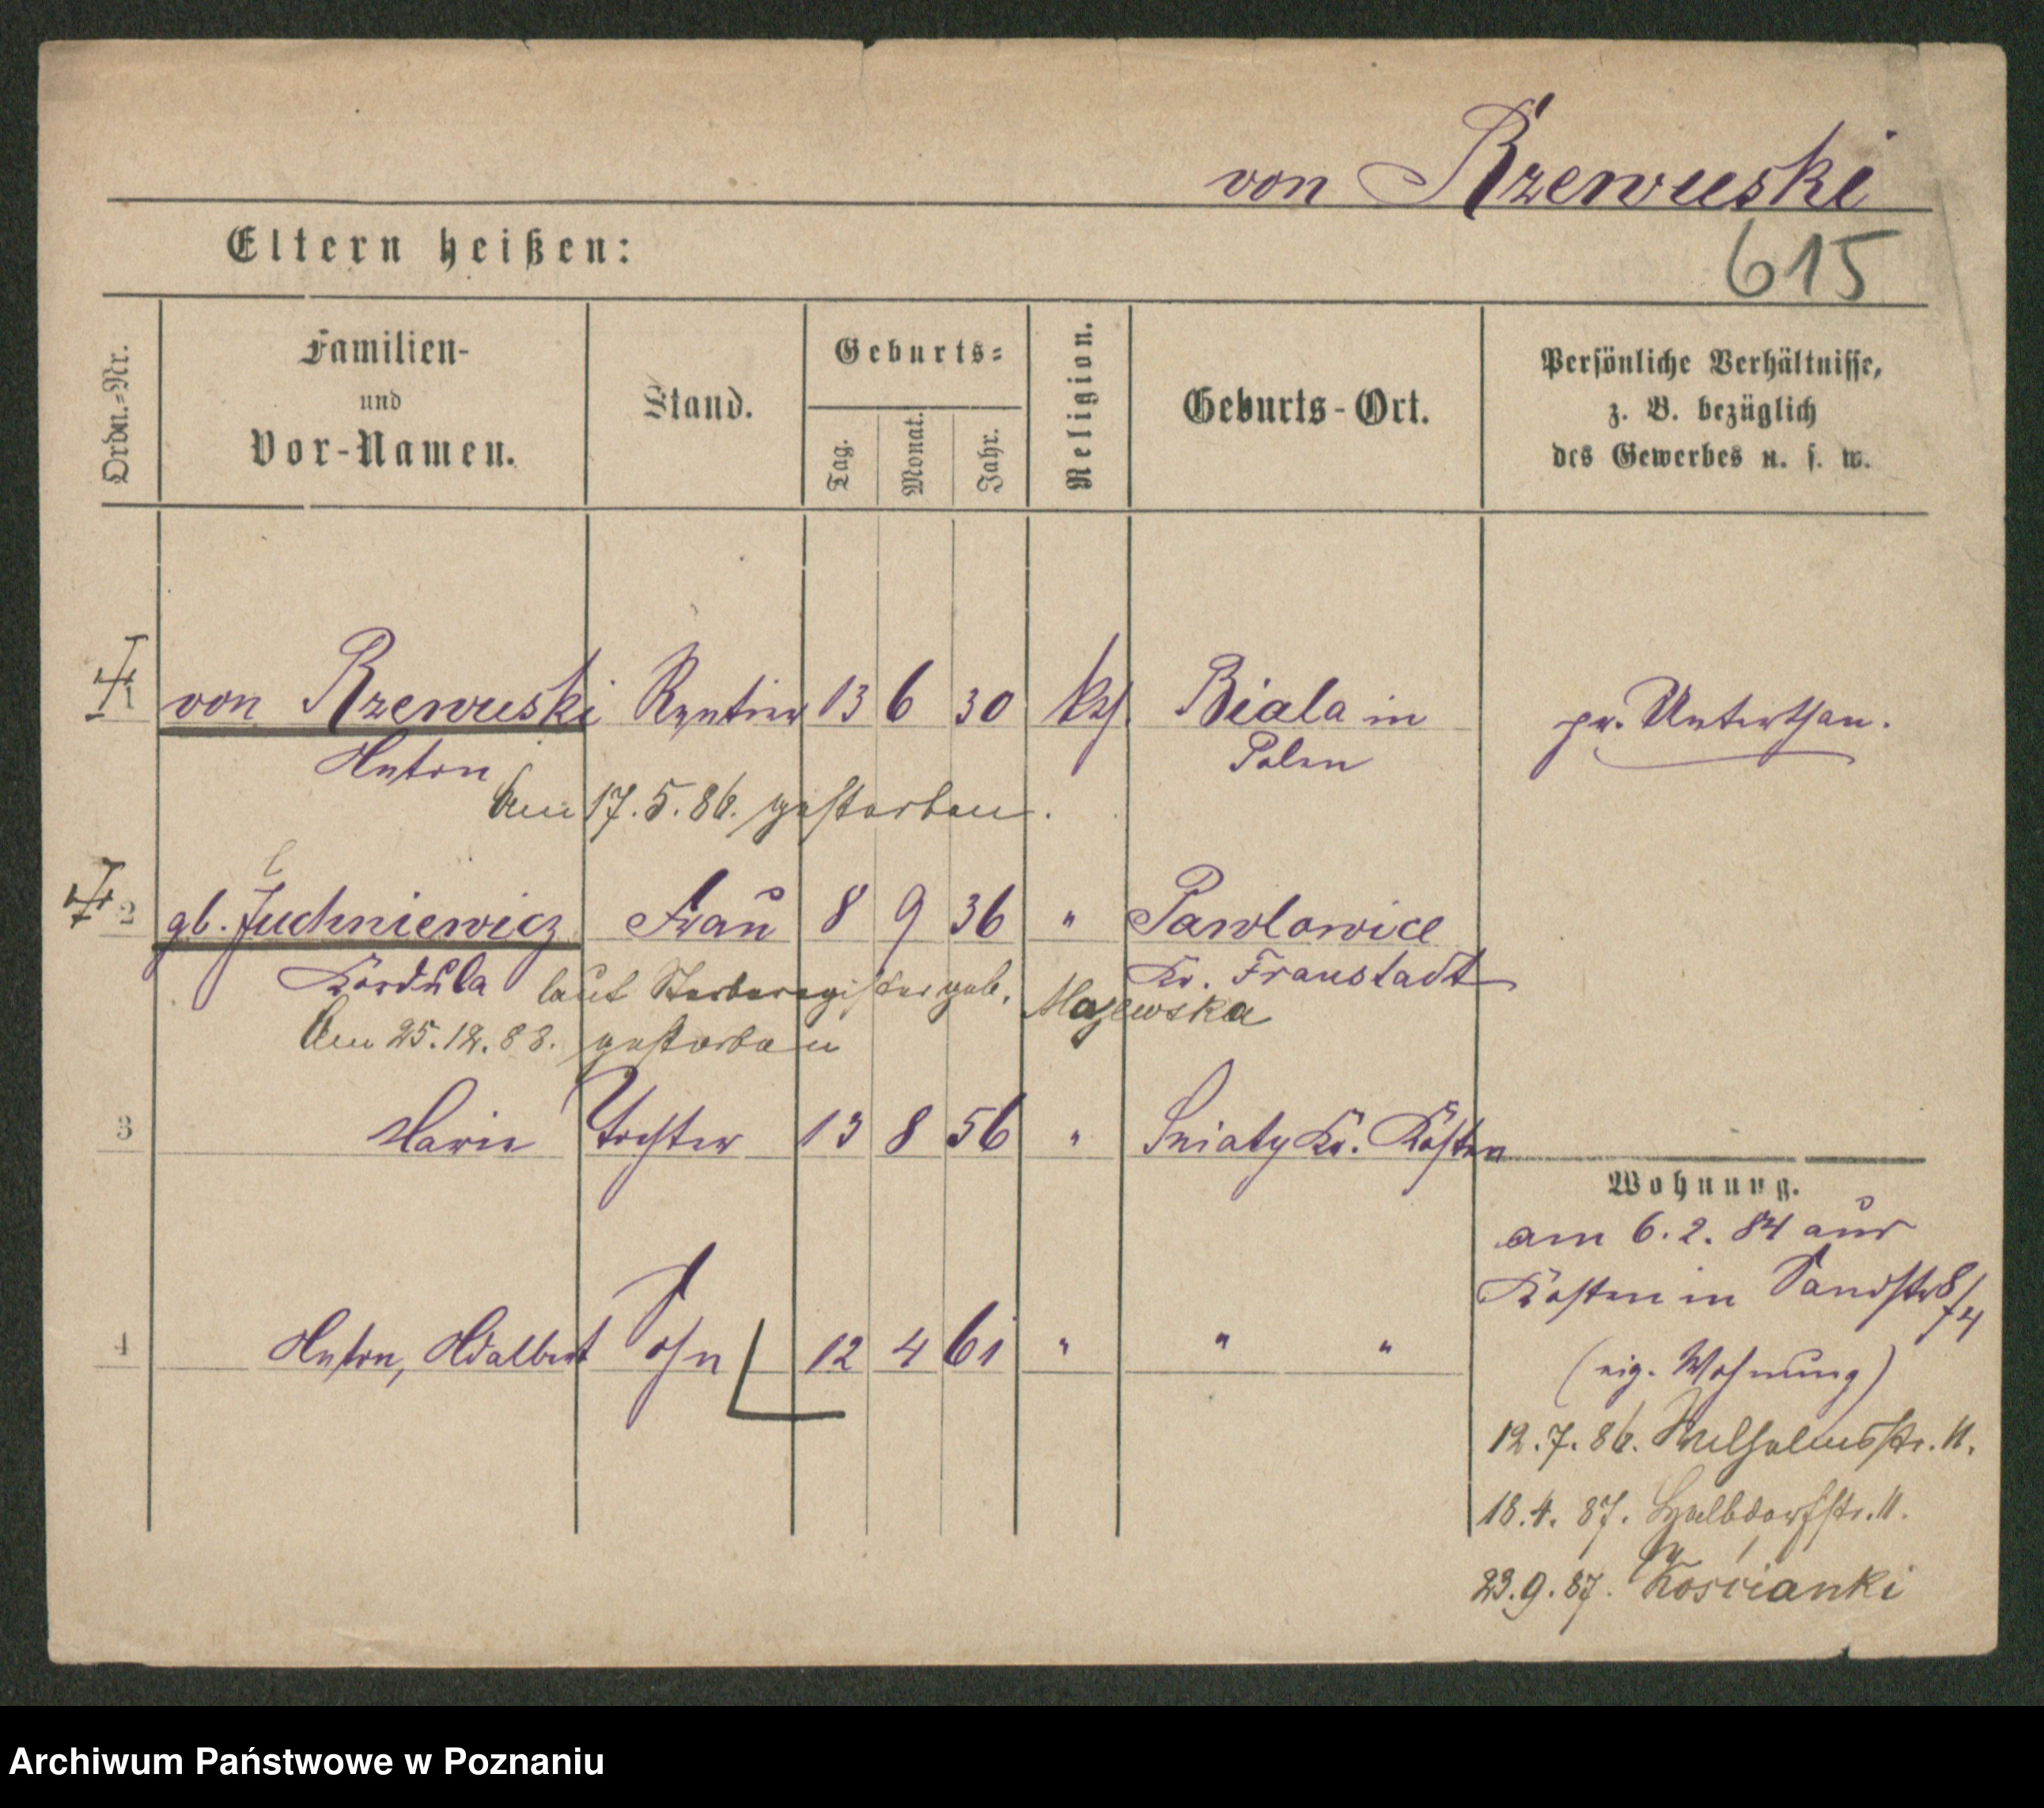 von Rzewuski
615
Eltern heißen:
Ordn.-Nr.
Familien-
und
Vor-Namen.
Stand.
Geburts-
Tag.
Monat.
Jahr.
Religion.
Geburts-Ort.
Persönliche Verhältnisse,
z. B. bezüglich
des Gewerbes u. s. w.
1 von Rzewuski Rentier 13 6 30 kth. Biala in pr. Unterthan.
Anton Polen
Am 17.5.86. gestorben.
2 gb. Juchniewicz Frau 8 9 36 " Pawlowice
Kordula Kr. Fraustadt
laut Sterberegister geb. Majewska
Am 25.12.88. gestorben
3 Marie Tochter 13 8 56 " Sniaty Kr. Kosten
4 Anton, Adalbert Sohn 12 4 61 " " "
Wohnung.
am 6.2.84 aus
Kosten in Sandstr 8/4
(eig. Wohnung)
12.7.86. Wilhelmsstr. 11.
18.4.87. Halbdorfstr. 11.
23.9.87. Kościanki
Archiwum Państwowe w Poznaniu